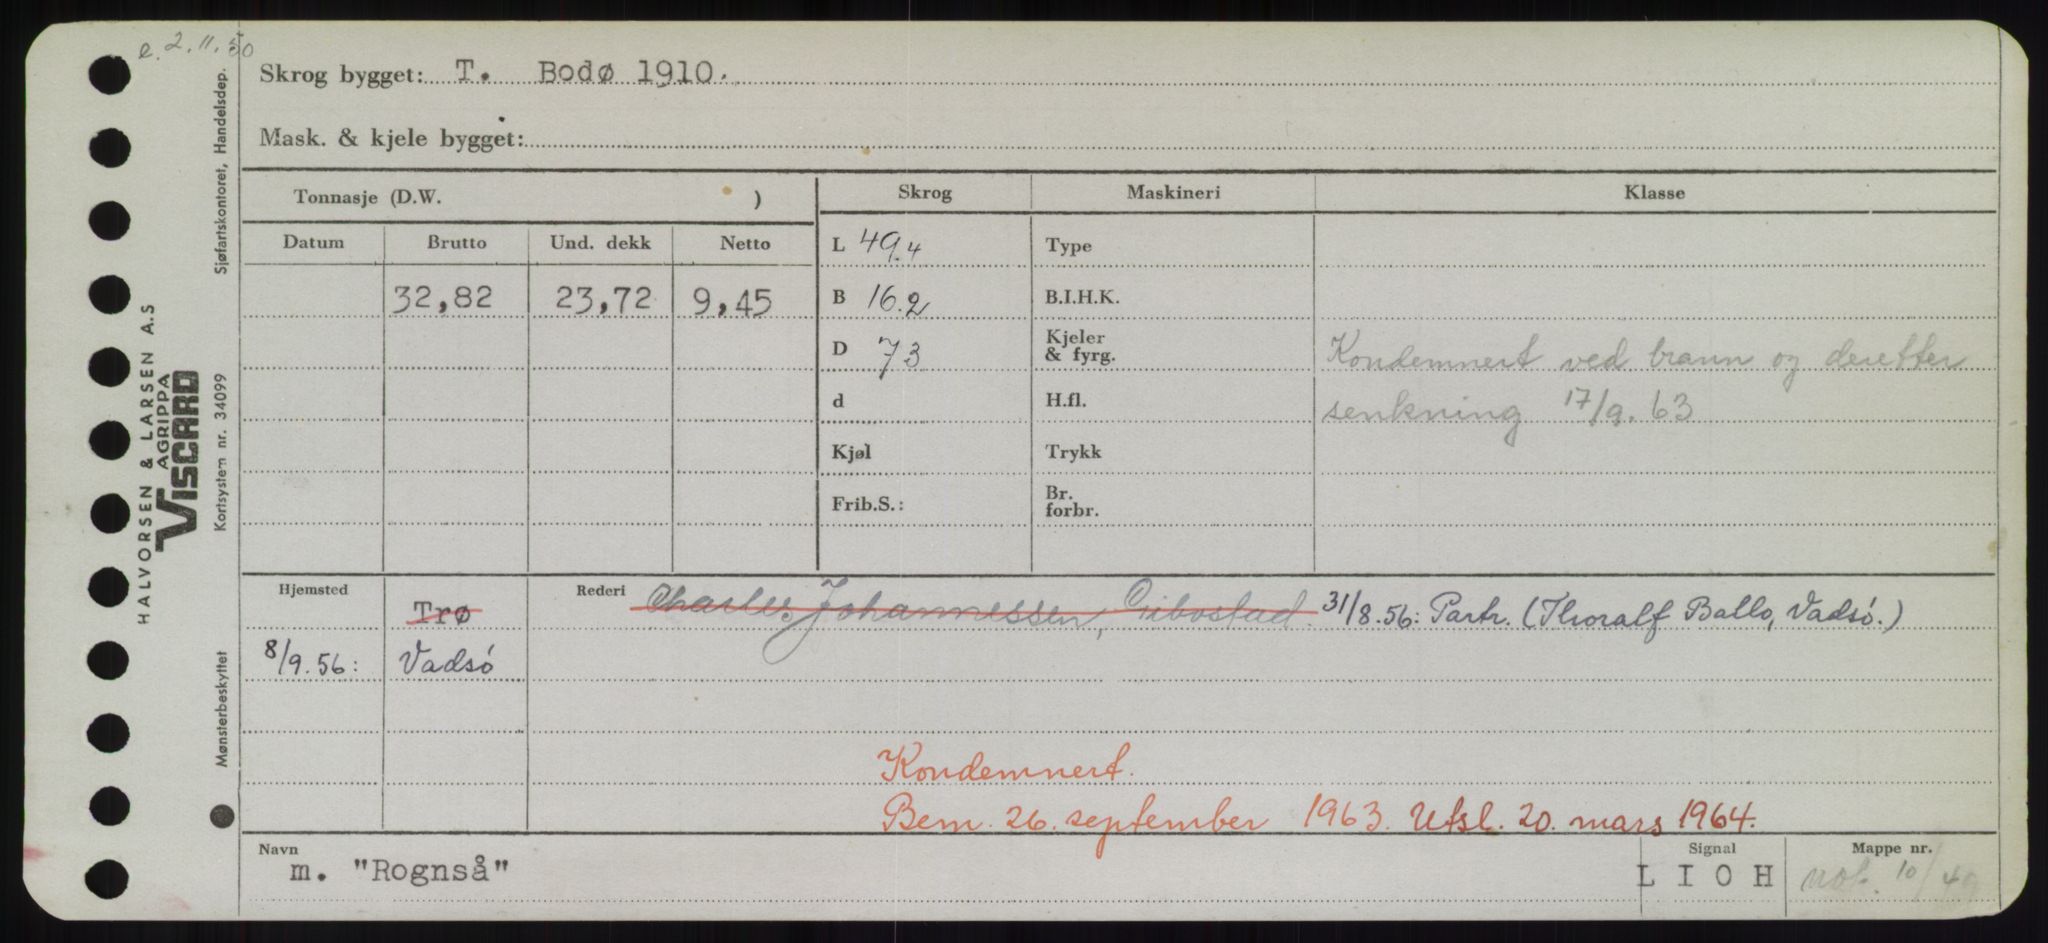 e. 2.11.50
Skrog bygget: T. Bodø 1910.
Mask. & kjele bygget:
Tonnasje (D.W. )
Skrog
Maskineri
Klasse
Datum
Brutto
Und. dekk
Netto
32,82
23,72
9,45
L 49.4
B 16.2
D 73
d
Kjøl
Frib.S.:
Type
B.I.H.K.
Kjeler
& fyrg.
H.fl.
Trykk
Br.
forbr.
Kondemnert ved brann og deretter
senkning 17/9. 63
Hjemsted
Trø
Rederi
Charles Johannessen, Gibostad. 31/8.56: Partr. (Thoralf Ballo, Vadsø.)
8/9.56: Vadsø
Kondemnert.
Bem. 26. september 1963. Utsl. 20. mars 1964.
Navn
m. "Rognså"
Signal
L I O H
Mappe nr.
not. 10/49
Sjøfartskontoret, Handelsdep.
Kortsystem nr. 34099
Mønsterbeskyttet
HALVORSEN & LARSEN A.S
AGRIPPA
VISCARD